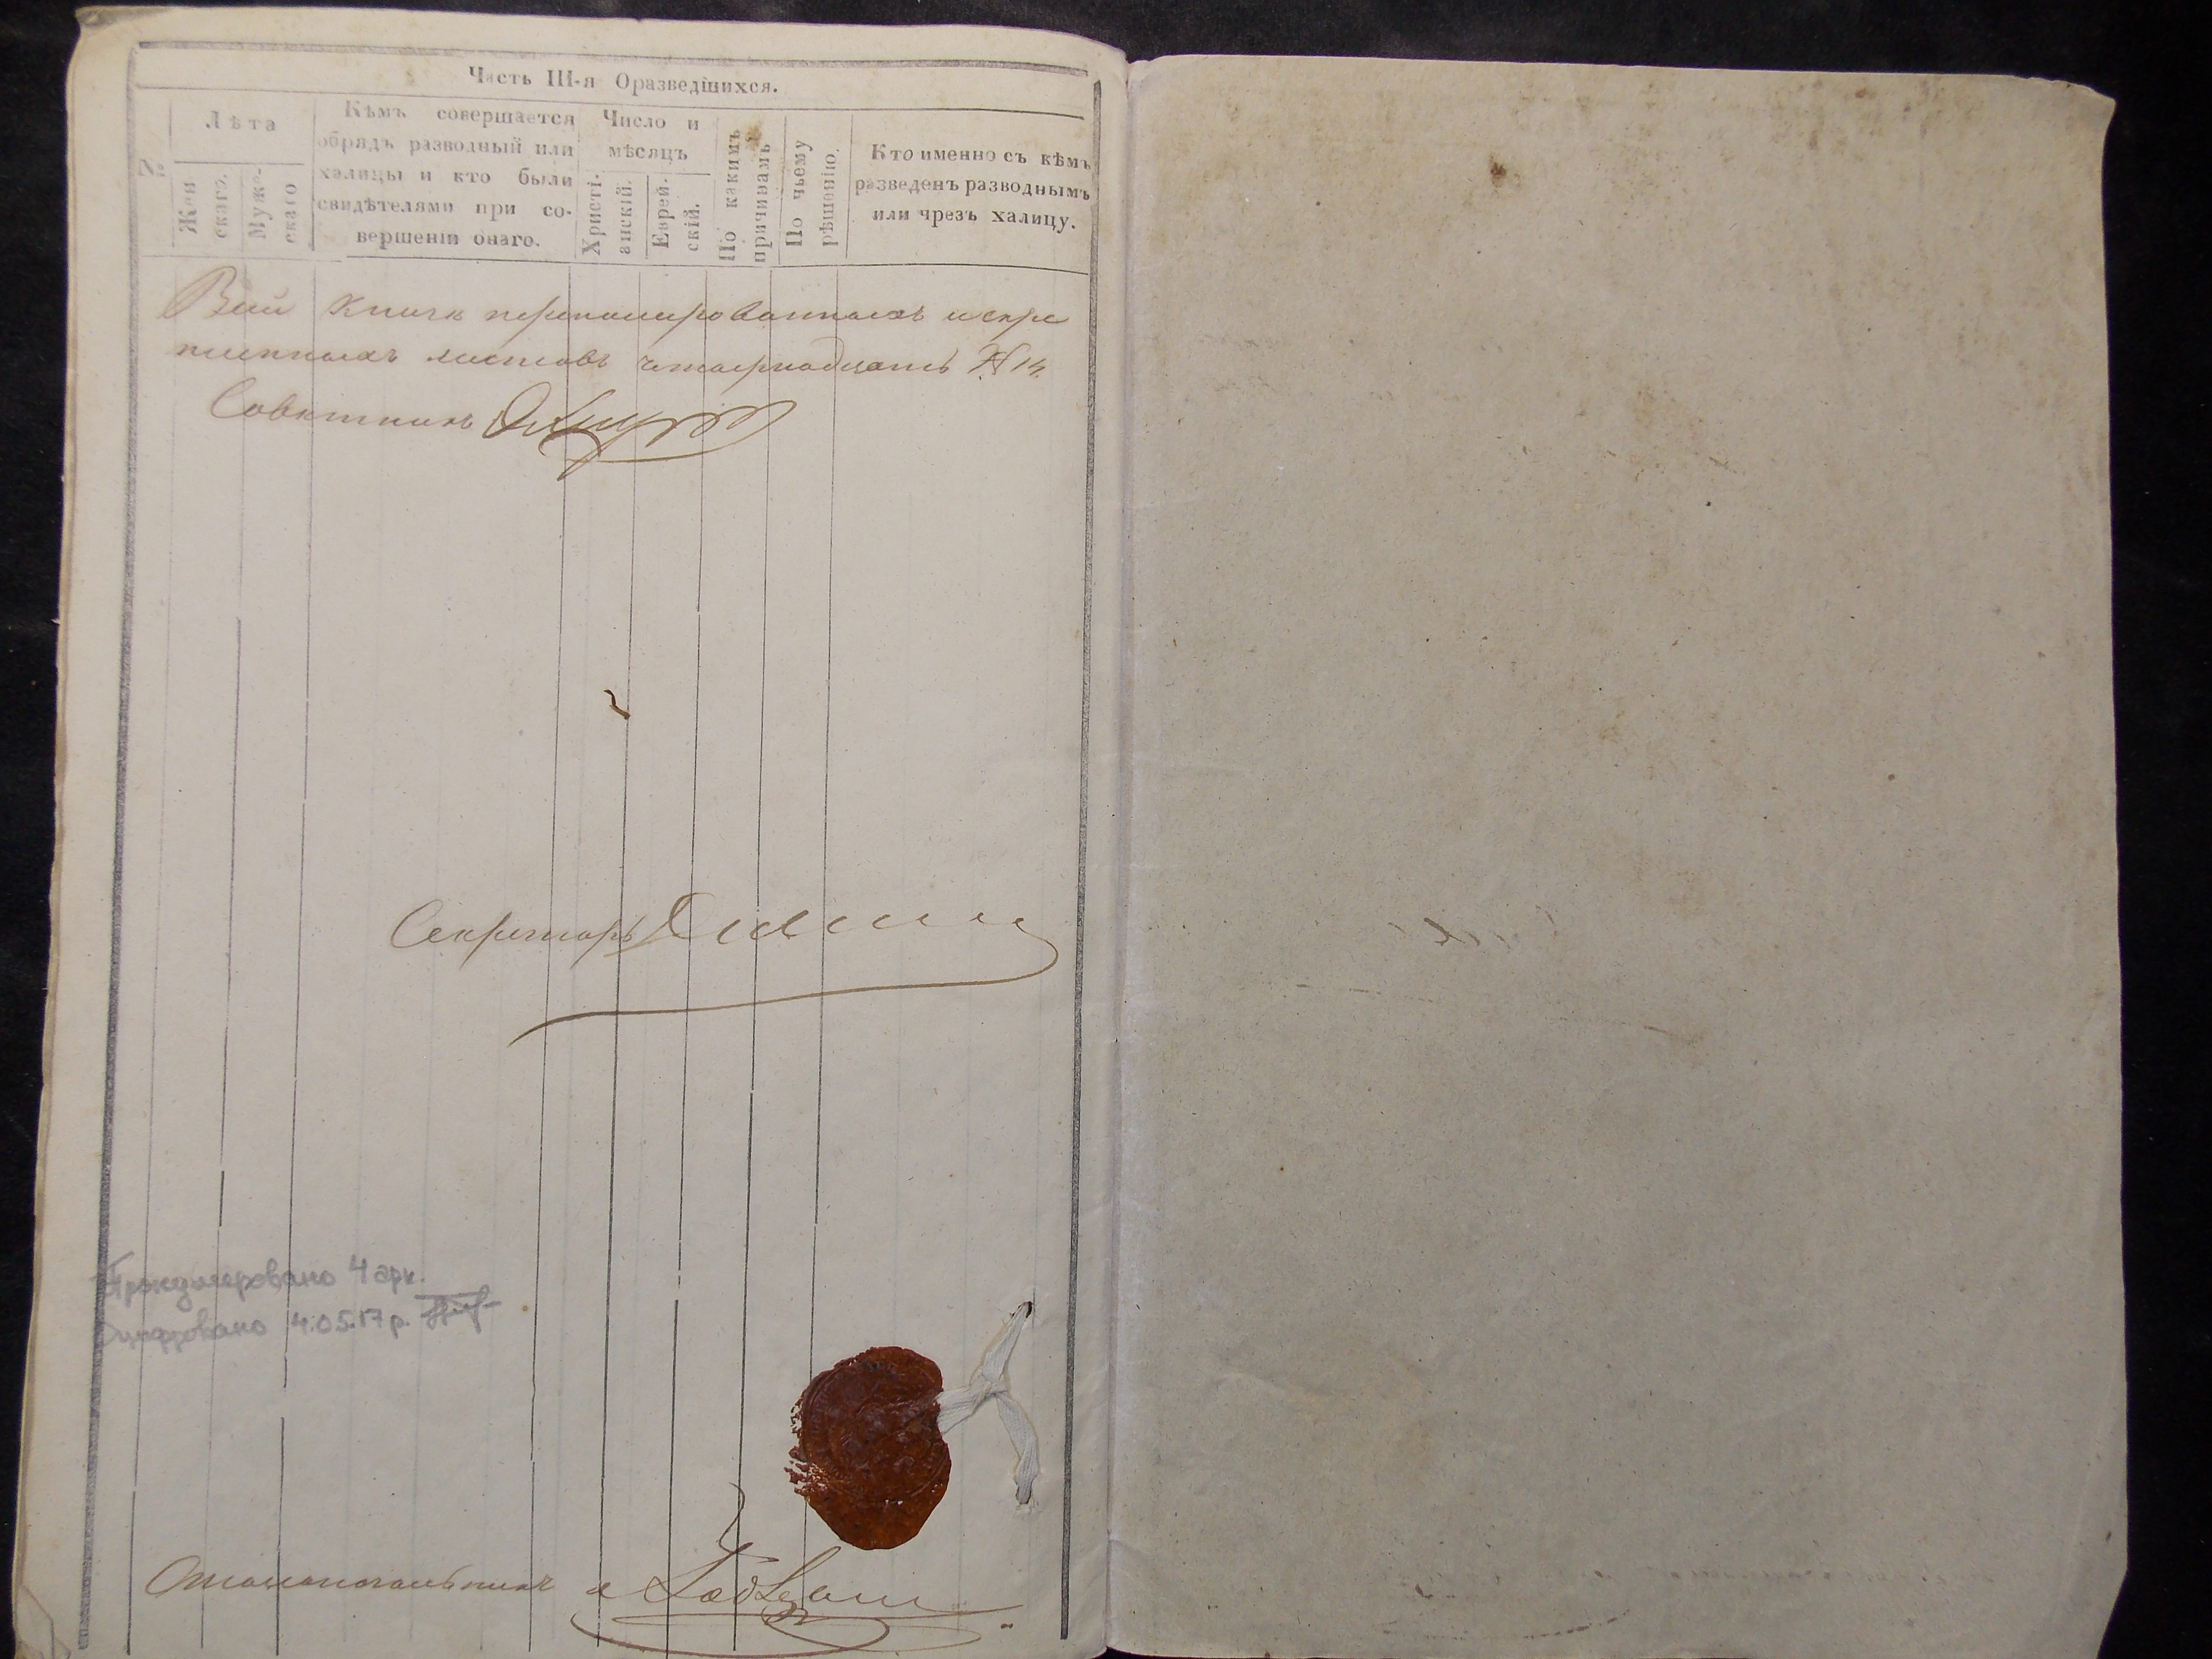 Часть III-я Оразведшихся.
№
Лѣта
Жен
скаго.
Муже-
скаго
Кѣмъ совершается
обрядъ разводный или
халицы и кто были
свидѣтелями при со-
вершеніи онаго.
Число и
мѣсяцъ
Христі-
анскій.
Еврей-
скій.
По какимъ
причинамъ
По чьему
рѣшенію.
Кто именно съ кѣмъ
разведенъ разводнымъ
или чрезъ халицу.
Всей книги перенумерованныхъ и скре
пленныхъ листовъ четырнадцать № 14.
Совѣтникъ
Секретарь
Пронумеровано 4 арк.
Оцифровано 4.05.17 р.
Столоначальникъ